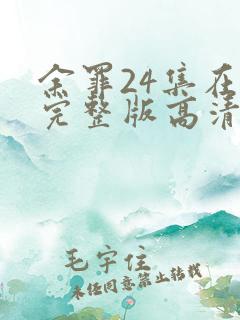 余罪24集在
完整版高清
毛宇住
未经同意禁止转载